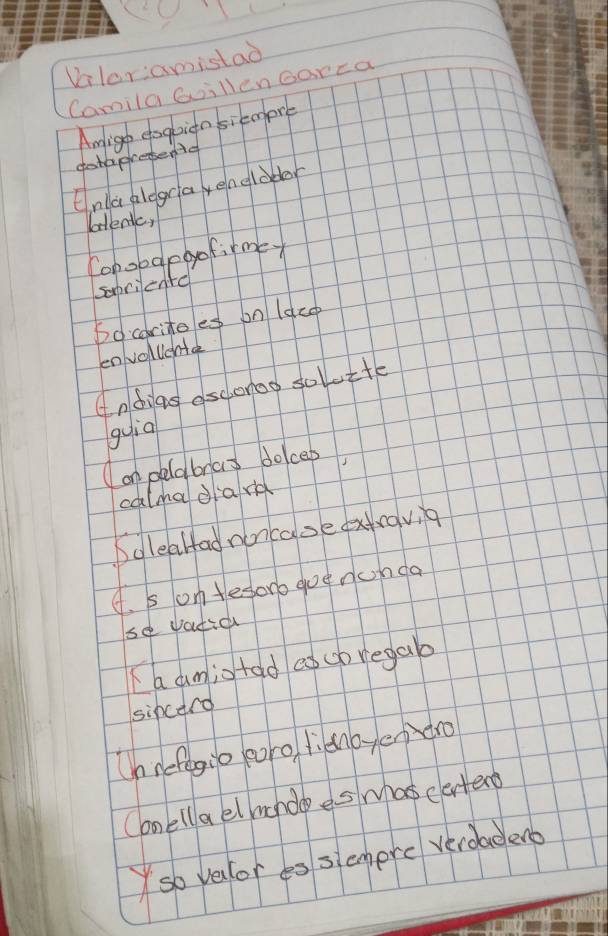 Valor:amistad
Camila Guillen Garza
Amigo esquien siempre
estapresente
En la alegria y eneldolor
latente,
Con soapoyo firme y
sonriente
So cariño es un lazo
envolvente
En dias oscuros soluz te
guia
Con palabras dolces,
calma diaria
So lealtad nonca se extravia
Es on tesoro que nunca
se vacia
La amistad es un regalo
sincero
Un refogio puro, tierno y entero
Con ella el mondo es mas certero
Y so valor es siempre verdadero